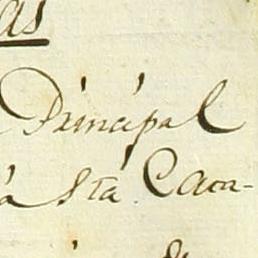 as
Principal
a Sta. Caza-